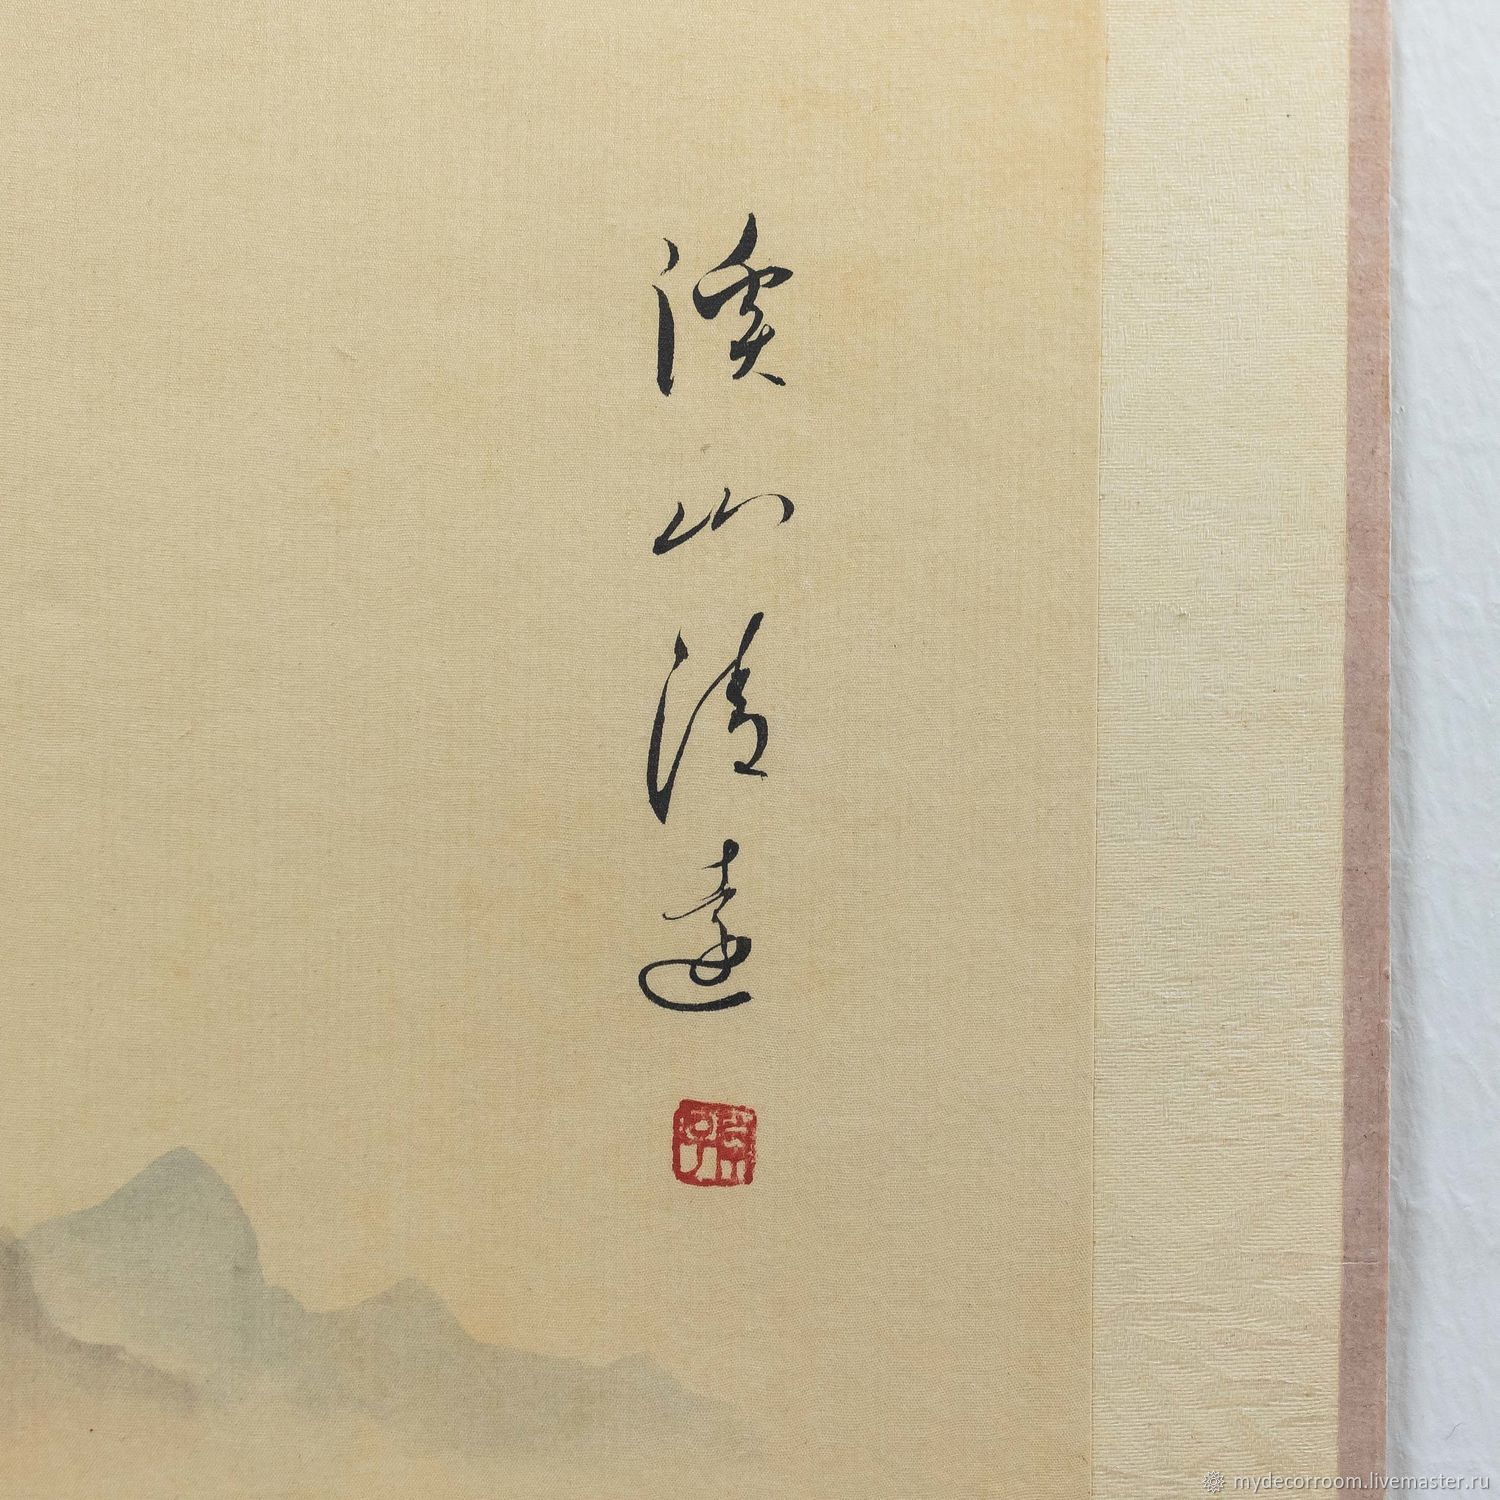 溪山清遠
mydecorroom.livemaster.ru